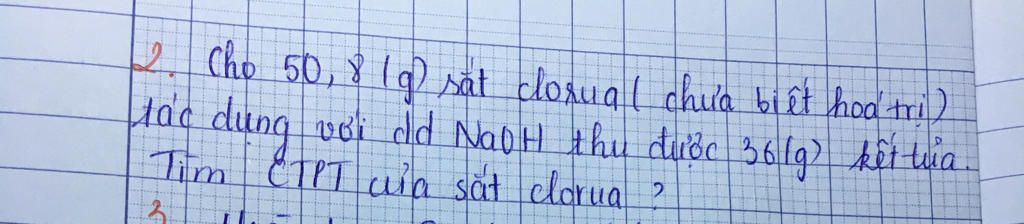 2. Cho 50,8 (g) sắt clorua ( chưa biết hoá trị)
tác dụng với dd NaOH thu được 36(g) kết tủa.
Tìm CTPT của sắt clorua ?
3